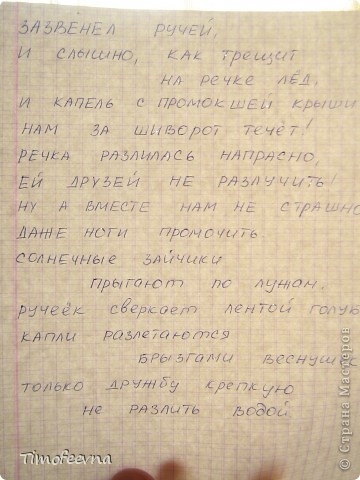 ЗАЗВЕНЕЛ РУЧЕЙ,
И СЛЫШНО, КАК ТРЕЩИТ
НА РЕЧКЕ ЛЁД.
И КАПЕЛЬ С ПРОМОКШЕЙ КРЫШИ
НАМ ЗА ШИВОРОТ ТЕЧЁТ!
РЕЧКА РАЗЛИЛАСЬ НАПРАСНО,
ЕЙ ДРУЗЕЙ НЕ РАЗЛУЧИТЬ!
НУ А ВМЕСТЕ НАМ НЕ СТРАШНО
ДАЖЕ НОГИ ПРОМОЧИТЬ.
СОЛНЕЧНЫЕ ЗАЙЧИКИ
ПРЫГАЮТ ПО ЛУЖАМ.
РУЧЕЁК СВЕРКАЕТ ЛЕНТОЙ ГОЛУБ
КАПЛИ РАЗЛЕТАЮТСЯ
БРЫЗГАМИ ВЕСНУШЕК
ТОЛЬКО ДРУЖБУ КРЕПКУЮ
НЕ РАЗЛИТЬ ВОДОЙ.
Timofeevna
© Страна Мастеров